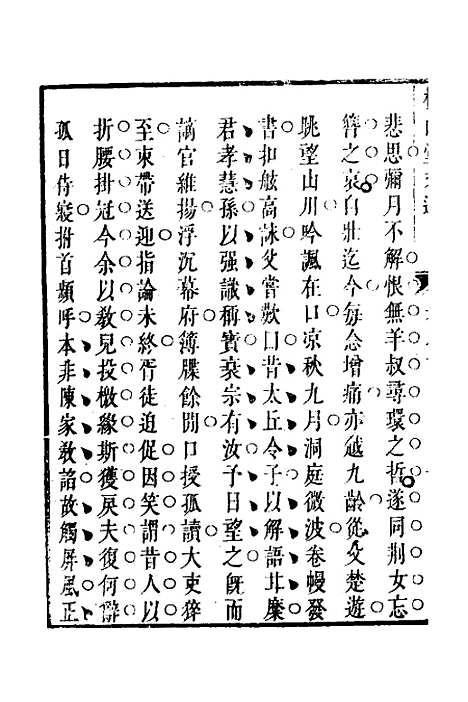 悲思彌月不解恨無羊叔尋環之哲遂同荆女忘
簪之哀自壯迄今每念增痛亦越九齡從父楚遊
眺望山川吟諷在口凉秋九月洞庭微波卷幔發
書扣舷高詠父嘗歎曰昔太丘令子以解語廿糜
君孝慧孫以强識稱實衰宗有汝予日望之旣而
謫官維揚浮沉幕府簿牒餘閒口授孤讀大吏猝
至束帶送迎指論未終胥徒迫促因笑謂昔人以
折腰掛冠今余以敎兒投檄緣斯獲戾夫復何辭
孤日侍寢拊首頻呼本非陳家敎諂故觸屏風正